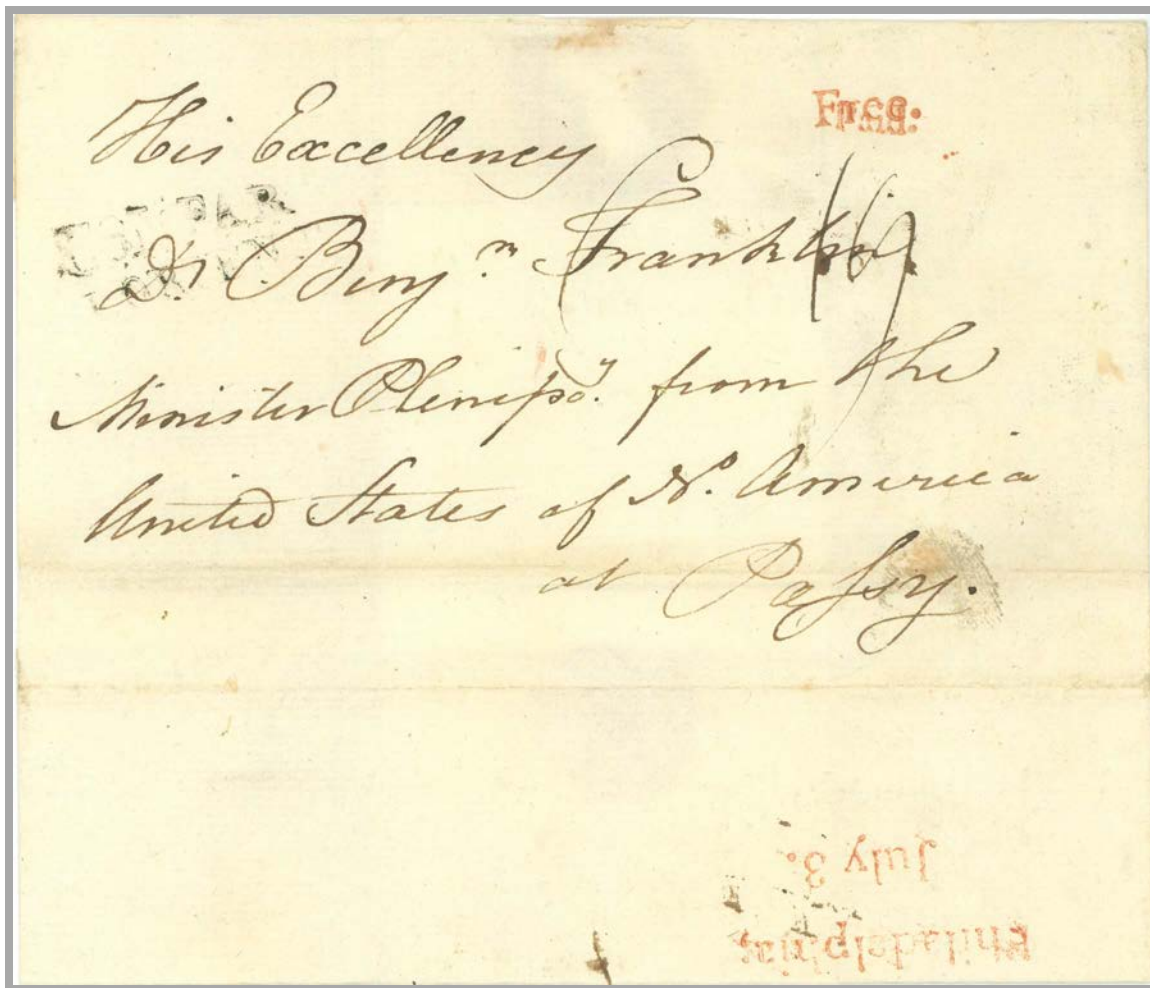 Free.
His Excellency
Dr. Benjn. Franklin
Minister Plenipoy. from the
United States of No. America
at Paſsy.
July 3.
Philadelphia,